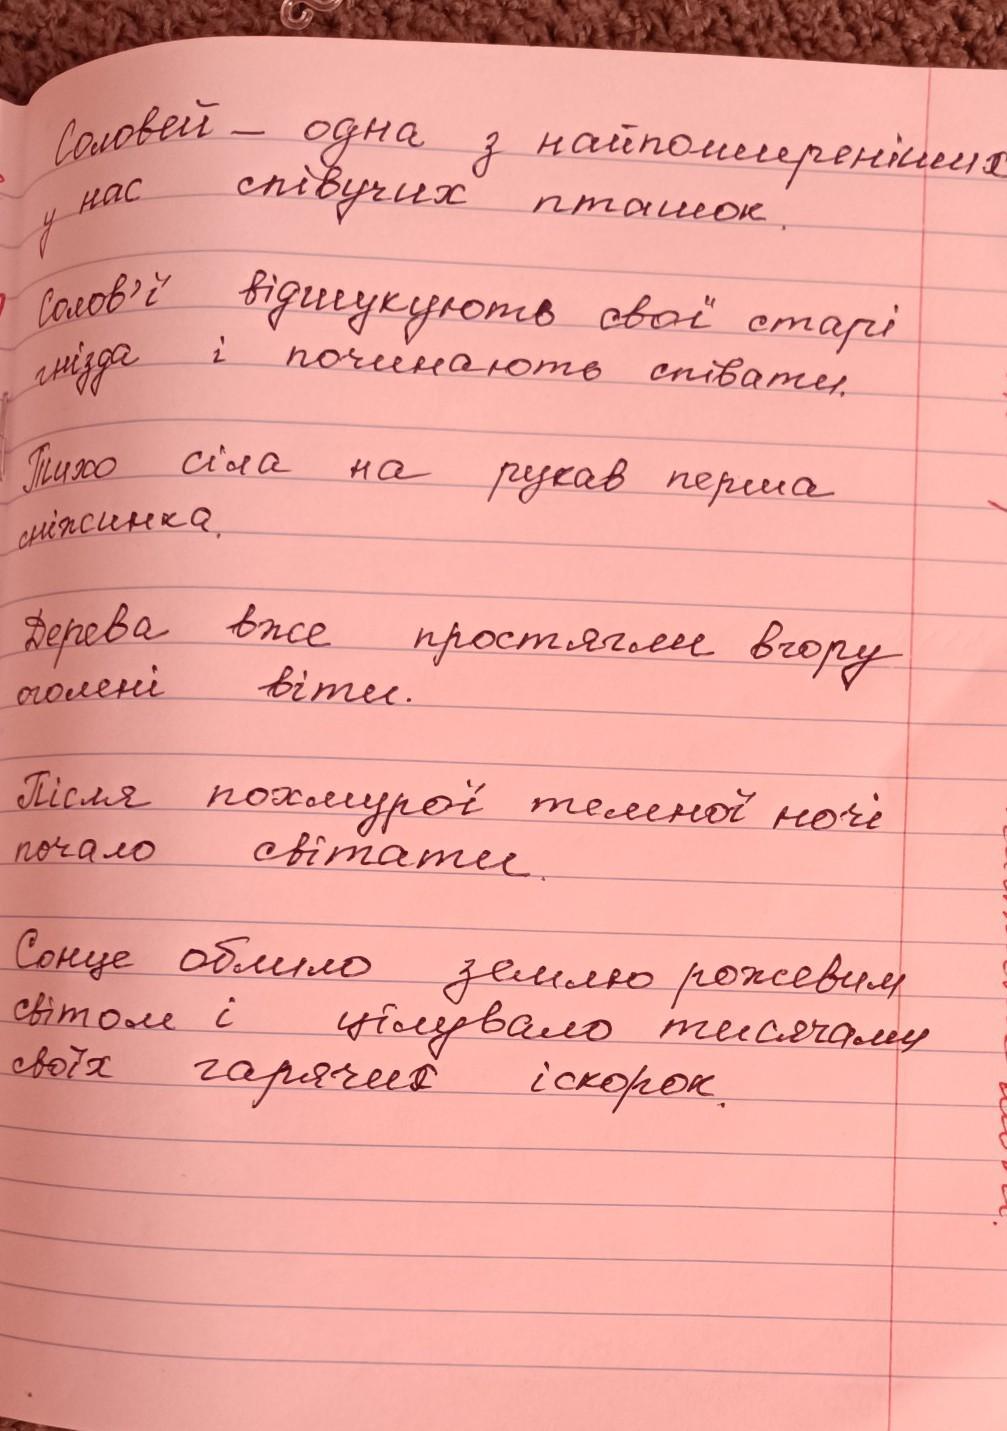 Соловей – одна з найпоширеніших
у нас співучих пташок.
Солов'ї відшукують свої старі
гнізда і починають співати.
Тихо сіла на рукав перша
сніжинка.
Дерева вже простягли вгору
оголені віти.
Після похмурої темної ночі
почало світати.
Сонце облило землю рожевим
світом і цілувало тисячами
своїх гарячих іскорок.